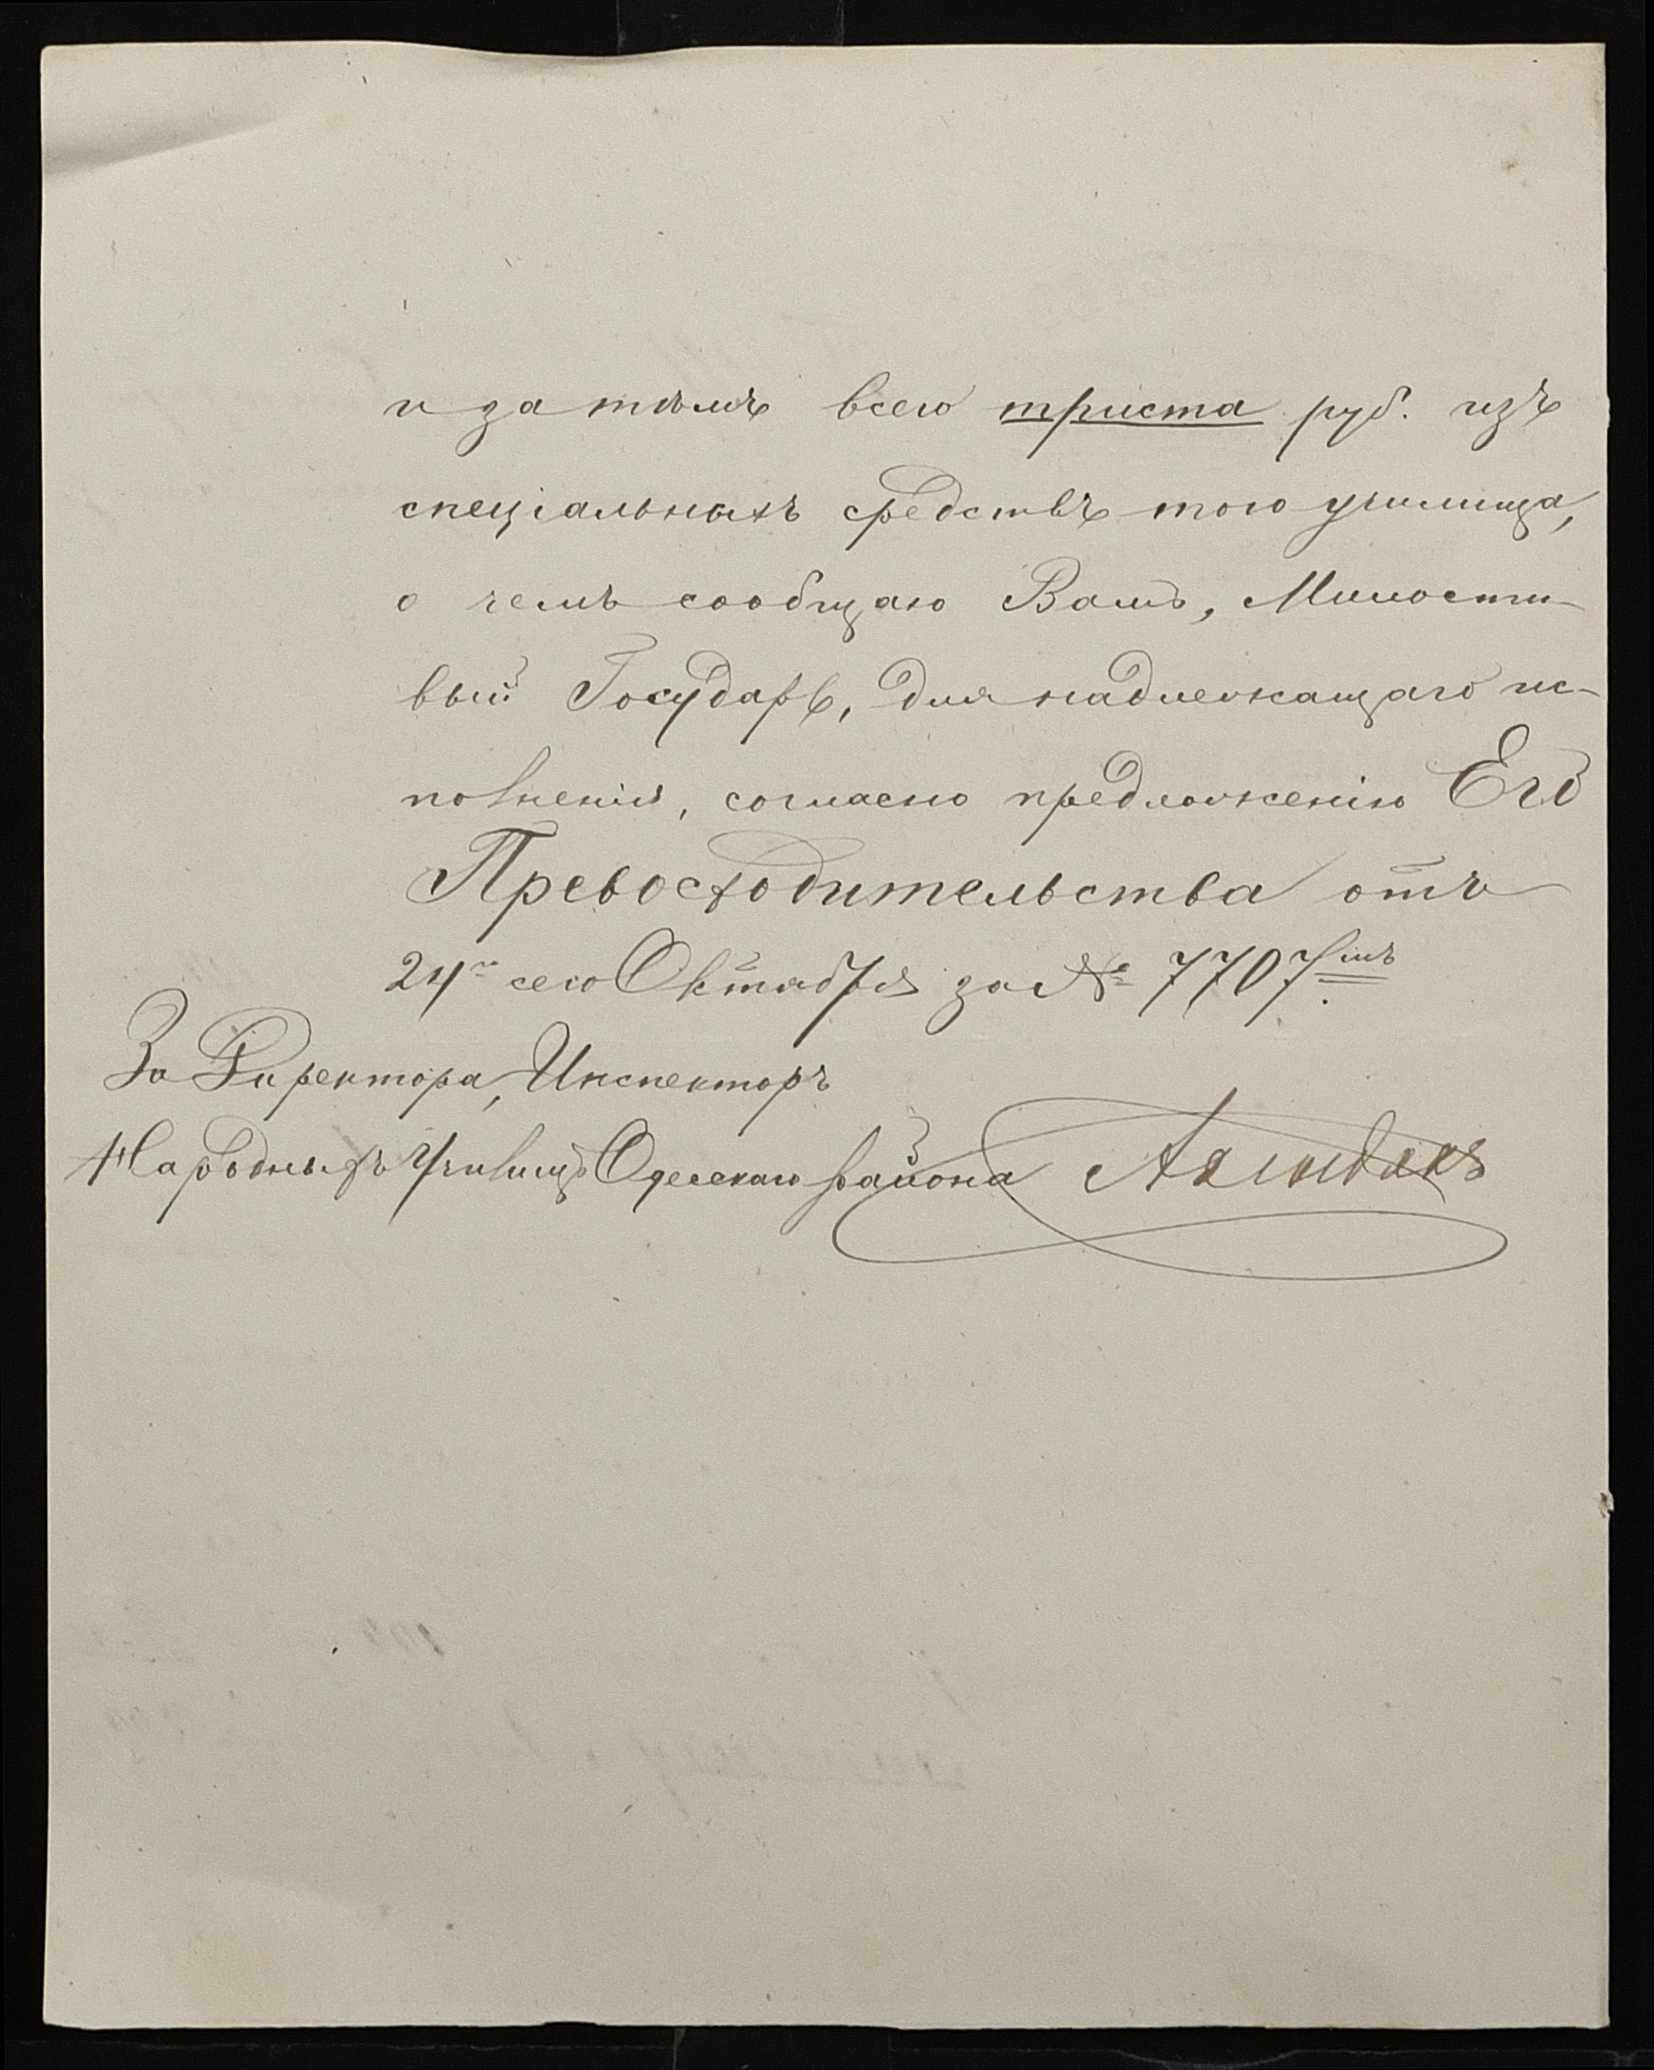 и затѣмъ всего триста руб. изъ
спеціальныхъ средствъ того училища,
о чемъ сообщаю Вамъ, Милости-
вый Государь, для надлежащаго ис-
полненія, согласно предложенію Его
Превосходительства отъ
24го сего Октября за № 7707мъ.
За Директора, Инспекторъ
Народныхъ Училищъ Одесскаго района